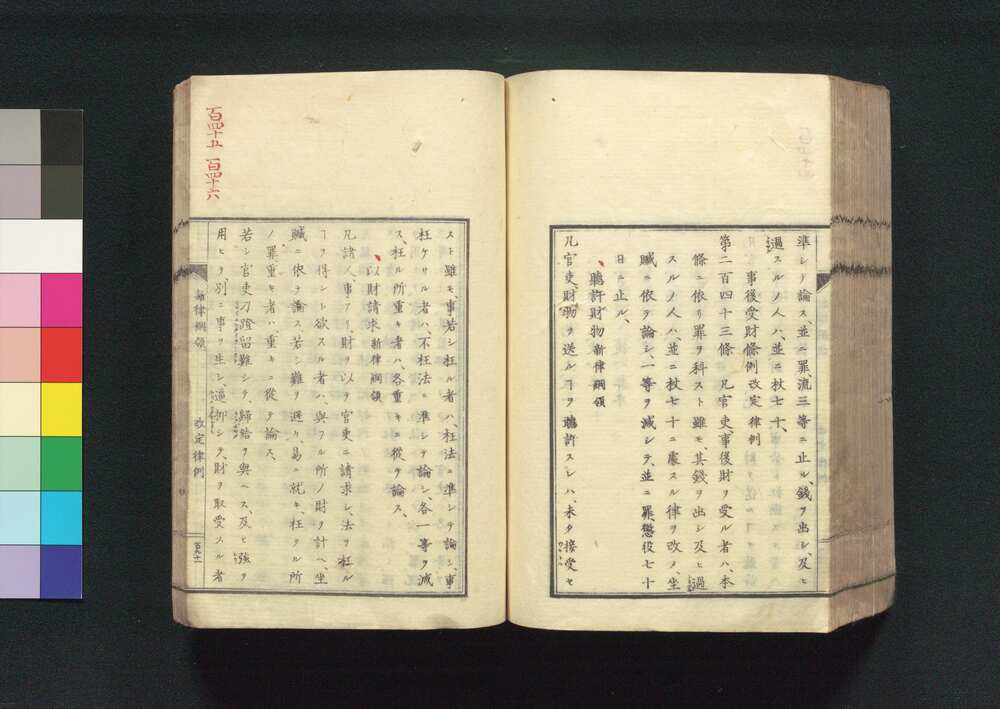 準シテ論ス並ニ罪流三等ニ止ル、錢ヲ出シ、及ヒ
過スルノ人ハ、並ニ杖七十、
事後受財條例 改定律例
第二百四十三條 凡官吏、事後財ヲ受ル者ハ、本
條ニ依リ罪ヲ科スト雖モ、其錢ヲ出シ及ヒ過
スルノ人ハ、並ニ杖七十ニ處スル律ヲ改メ、坐
贓ニ依テ論シ、一等ヲ減シテ、並ニ罪懲役七十
日ニ止ル、
聽許財物 新律綱領
凡官吏、財物ヲ送ルヿヲ聽許スレハ、未タ接受セ
スト雖モ、事若シ枉ル者ハ、枉法ニ準シテ論シ、事
枉ケサル者ハ、不枉法ニ準シテ論シ、各一等ヲ減
ス、枉ル所重キ者ハ、各重キニ從テ論ス、
以財請求 新律綱領
凡諸人、事アリ、財ヲ以テ官吏ニ請求シ、法ヲ枉ル
ヿヲ得ント欲スル者ハ、與フル所ノ財ヲ計ヘ、坐
贓ニ依テ論ス、若シ難ヲ避ケ、易ニ就キ、枉クル所
ノ罪重キ者ハ、重キニ從テ論ス、
若シ官吏刁蹬留難シテ、歸結ヲ與ヘス、及ヒ強ヲ
用ヒテ、別ニ事ヲ生シ、逼抑シテ、財ヲ取受スル者
新律綱領 改定律例
百四十五 百四十六